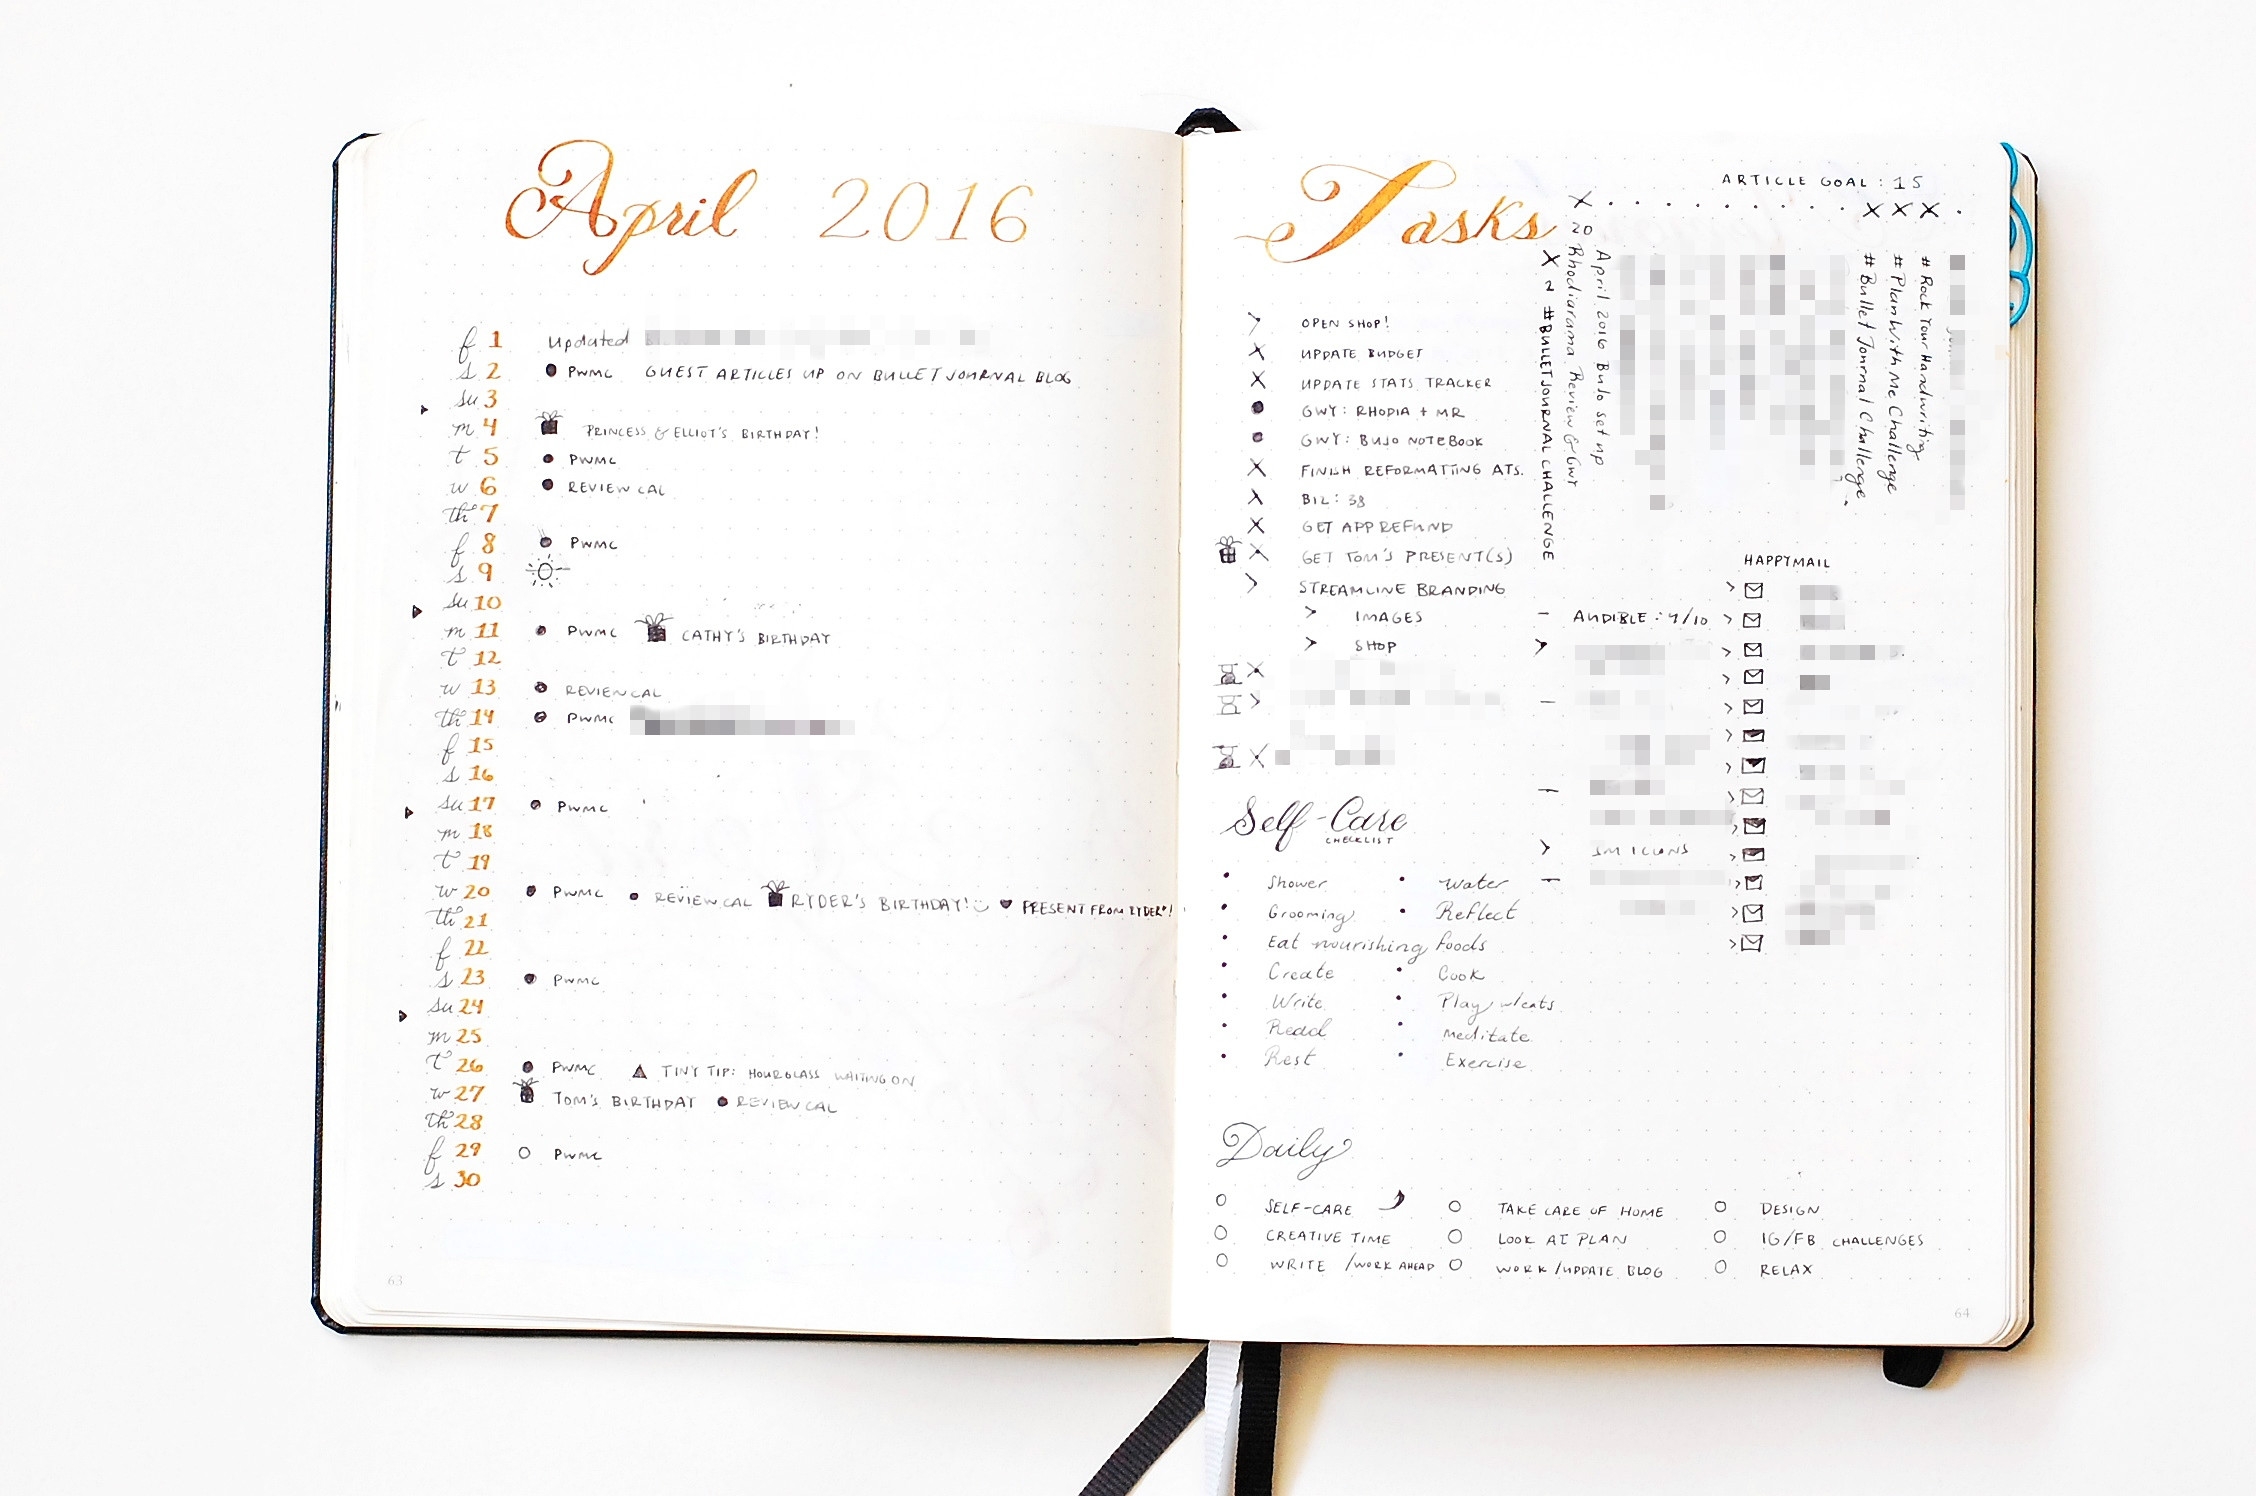 April 2016
f 1 Updated
s 2 PWMC GUEST ARTICLES UP ON BULLET JOURNAL BLOG
su 3
m 4 PRINCESS & ELLIOT'S BIRTHDAY!
t 5 PWMC
w 6 REVIEW CAL
th 7
f 8 PWMC
s 9
su 10
m 11 PWMC CATHY'S BIRTHDAY
t 12
w 13 REVIEW CAL
th 14 PWMC
f 15
s 16
su 17 PWMC
m 18
t 19
w 20 PWMC REVIEW CAL RYDER'S BIRTHDAY! PRESENT FROM RYDER!
th 21
f 22
s 23 PWMC
su 24
m 25
t 26 PWMC TINY TIP: HOURGLASS WAITING ON
w 27 TOM'S BIRTHDAY REVIEW CAL
th 28
f 29 PWMC
s 30
63
Tasks
ARTICLE GOAL: 15
X X X X
X 2 #BULLETJOURNAL CHALLENGE
20 Rhodiarama Review & GWY
April 2016 BuJo set up
#Bullet Jornal Challenge
#PlanWithMe Challenge
#Rock Your Handwriting
> OPEN SHOP!
X UPDATE BUDGET
X UPDATE STATS TRACKER
GWY: RHODIA + MR
GWY: BUJO NOTEBOOK
X FINISH REFORMATTING ATS.
X BIZ: 38
X GET APP REFUND
X GET TOM'S PRESENT(S)
> STREAMLINE BRANDING
> IMAGES
> SHOP
X
>
X
– AUDIBLE: 4/10
>
–
–
> SM ICONS
–
HAPPYMAIL
Self-Care
CHECKLIST
Shower
Grooming
Eat nourishing foods
Create
Write
Read
Rest
Water
Reflect
Cook
Play w/cats
Meditate
Exercise
Daily
SELF-CARE
CREATIVE TIME
WRITE /WORK AHEAD
TAKE CARE OF HOME
LOOK AT PLAN
WORK/UPDATE BLOG
DESIGN
IG/FB CHALLENGES
RELAX
64